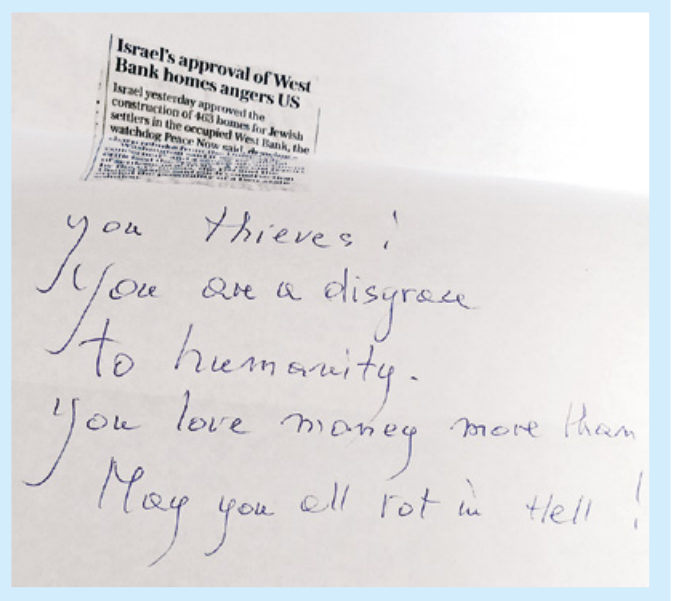 Israel's approval of West
Bank homes angers US
Israel yesterday approved the
construction of 463 homes for Jewish
settlers in the occupied West Bank, the
watchdog Peace Now said,
you thieves!
You are a disgrace
to humanity.
You love money more than
May you all rot in Hell!